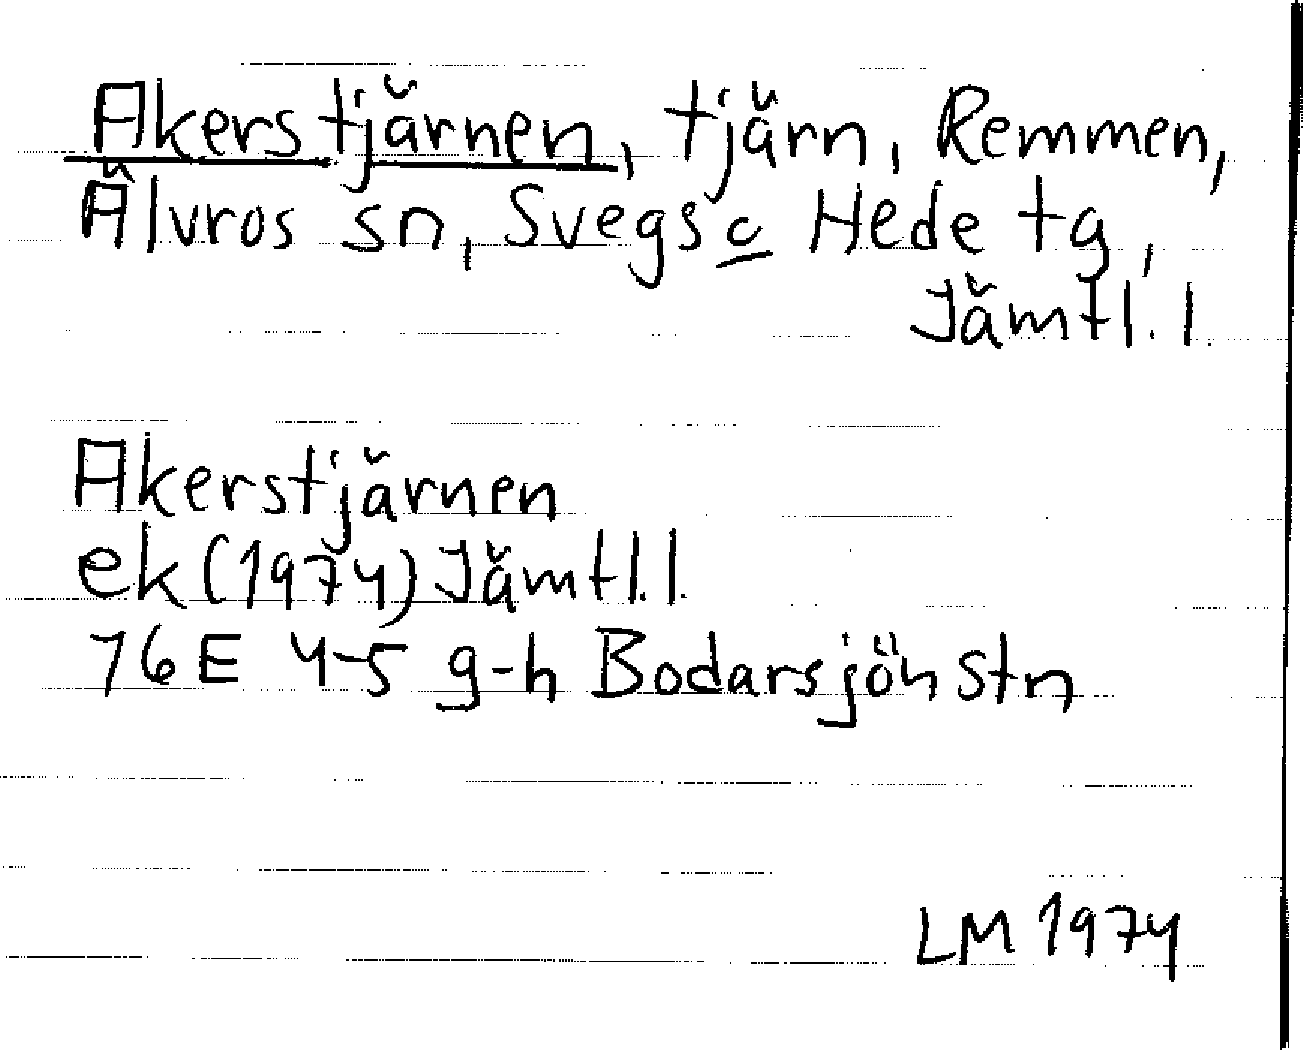 Akerstjärnen, tjärn, Remmen,
Älvros sn, Svegs o Hede tg,
Jämtl. l.
Akerstjärnen
ek (1974) Jämtl. l.
16E 4-5 g-h Bodarsjön stn
LM 1974